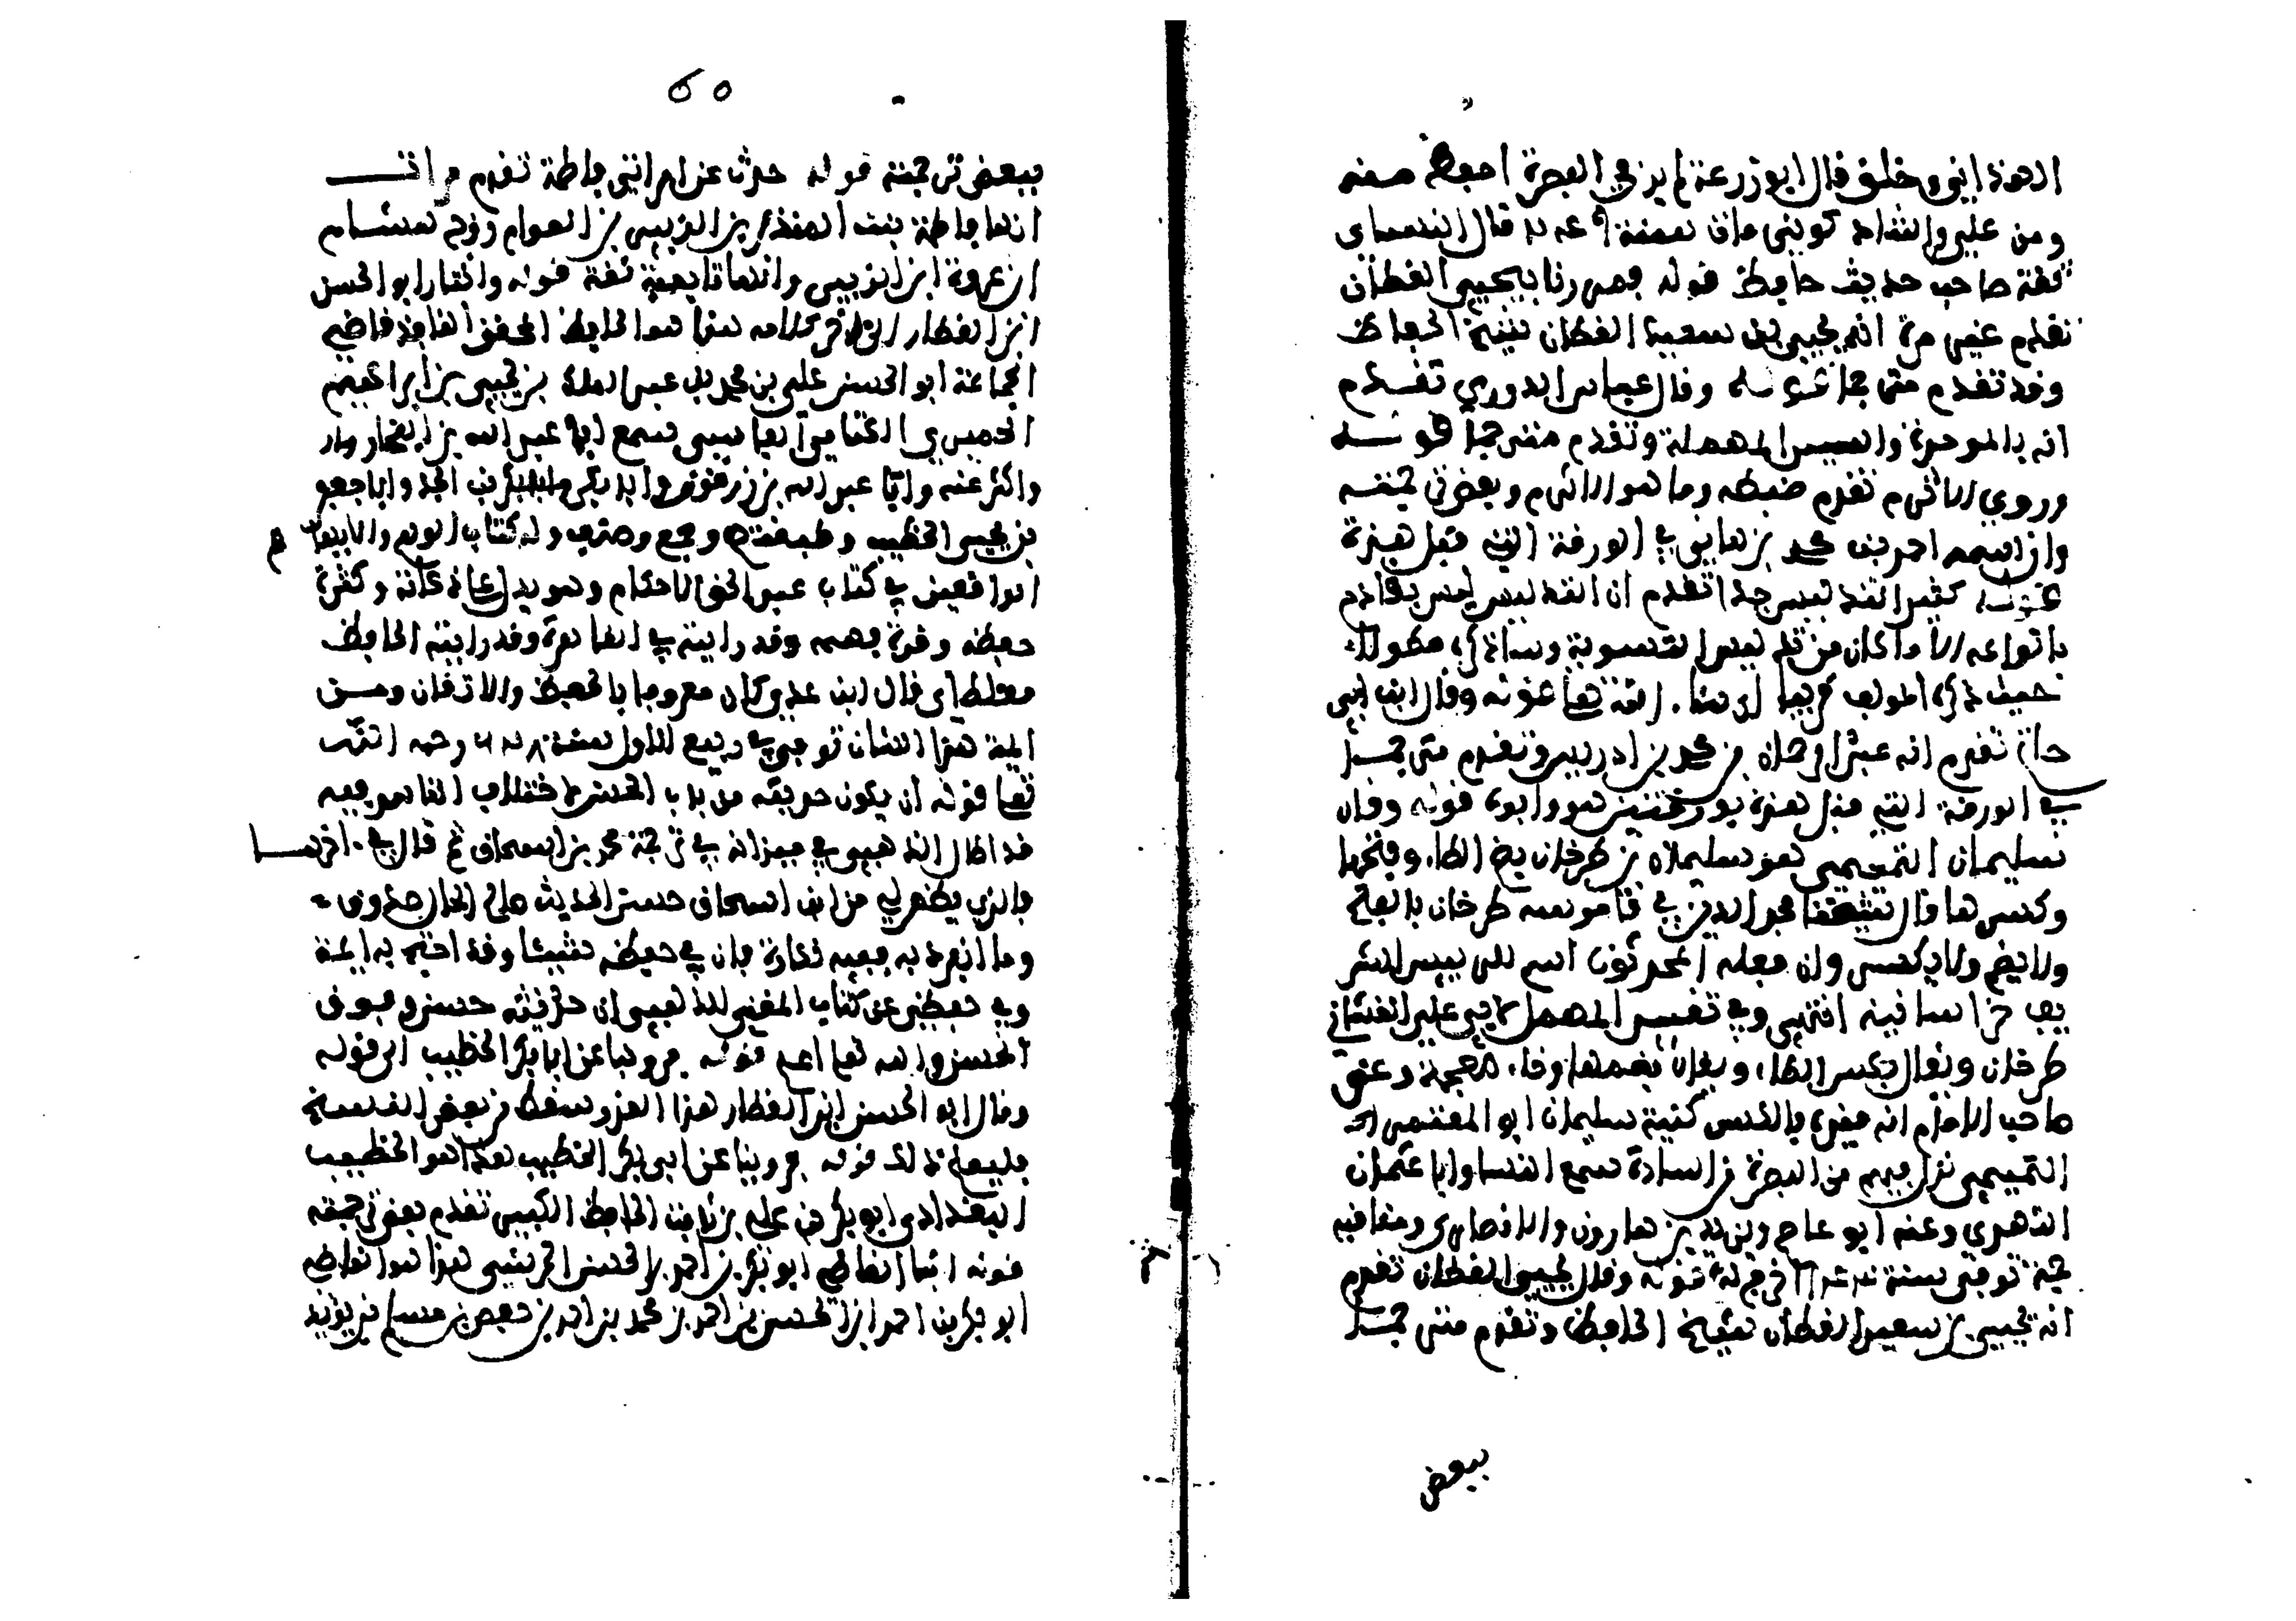 الهمداني وخلق قال ابو زرعة لم يزفي البصرة احفظ منه
ومن علي وابن الشاذكوني مات سنة قال النسائي
ثقة صاحب حديث حافظ قوله فمررنا بيحيى القطان
تقدم غير مرة انه يحيى بن سعيد القطان شيخ الحفاظ
وقد تقدم مترجما قوله وقال عباس الدوري تقدم
انه بالموحدة والسين المهملة وتقدم مترجما قوله
وروى الاثرم تقدم ضبطه وما هو الاثرم وبعض ترجمته
وان اسمه احمد بن محمد بن هاني في الورقة التي قبل هذه
قوله كثير التدليس جدا تقدم ان التدليس ليس بقادح
بانواعه الا ما كان من تدليس التسوية وساذكره مطولا
حيث ذكره المولف قريبا ان شاء الله تعا قوله وقال ابن ابي
حاتم تقدم انه عبد الرحمان بن محمد بن ادريس وتقدم مترجما
في الورقة التي قبل هذه بورقتين هو وابوه قوله وقال
سليمان التيمي هو سليمان بن طرخان بضم الطاء وفتحها
وكسرها قال شيخنا مجد الدين في قاموسه طرخان بالفتح
ولا يضم ولا يكسر وان فعله المحدثون اسم للرييس الشر
يف خراسانية انتهى وفي تقييد المهمل لابي علي الغساني
طرخان ويقال بكسر الطاء ويقال بضمها وخاء معجمة وعن
صاحب الامام انه قيده بالضم كنية سليمان ابو المعتمر
التيمي نزل فيهم من البصرة من السادة سمع انسا وابا عثمان
النهدي وعنه ابو عاصم ويزيد بن هارون والانصاري ومناقبه
جمة توفي سنة اخرج له ع قوله وقال يحيى القطان تقدم
انه يحيى بن سعيد القطان شيخ الحافظ وتقدم مترجما
ببعض
ببعض ترجمته قوله حدث عن امراتي فاطمة تقدم مرات
انها فاطمة بنت المنذر بن الزبير بن العوام زوج هشام
بن عروة ابن الزبير وانها تابعية ثقة قوله واختار ابو الحسن
ابن القطان الى اخر كلامه هذا هو الحافظ المحقق الناقد قاضي
الجماعة ابو الحسن علي بن محمد بن عبد الملك بن يحيى بن ابراهيم
الحميري الكتامي الفاسي سمع ابا عبد الله بن الفخار
واكثر عنه وابا عبد الله بن زرقون وابا بكر بن الجد وابا جعفر
بن يحيى الخطيب وطبقتهم وجمع وصنف وله كتاب الوهم والايهام
الواقعين في كتاب عبد الحق الاحكام وهو يدل على ذكائه وكثرة
حفظه وقوة فهمه وقد رايته في القاهرة وقد رايته الحافظ
مغلطاي قال ابن عدي كان معروفا بالحفظ والاتقان ومن
ايمة هذا الشان توفي في ربيع الاول سنة رحمه الله
تعا قوله ان يكون حديثه من باب الحسن لاختلاف الناس فيه
قد اطال الذهبي في ميزانه في ترجمة محمد بن اسحاق ثم قال في اخرها
فالذي يظهر لي من ابن اسحاق حسن الحديث صالح الحال صدوق
وما انفرد به ففيه نكارة فان في حفظه شيئا وقد احتج به ايمة
وفي حفظي عن كتاب المغني للذهبي ان حديثه حسن وفوق
الحسن والله تعا اعلم قوله فروينا عن ابي بكر الخطيب الى قوله
وقال ابو الحسن ابن القطان هذا العزو سقط من بعض النسخ
فليعلم ذلك قوله فروينا عن ابي بكر الخطيب هذا هو الخطيب
البغدادي ابو بكر بن علي بن ثابت الحافظ الكبير تقدم بعض ترجمته
قوله انبا القاضي ابو بكر بن احمد بن الحسن الحرشي هذا هو القاضي
ابو بكر بن احمد ابن الحسن بن احمد بن محمد بن احمد بن حفص بن مسلم بن يزيد